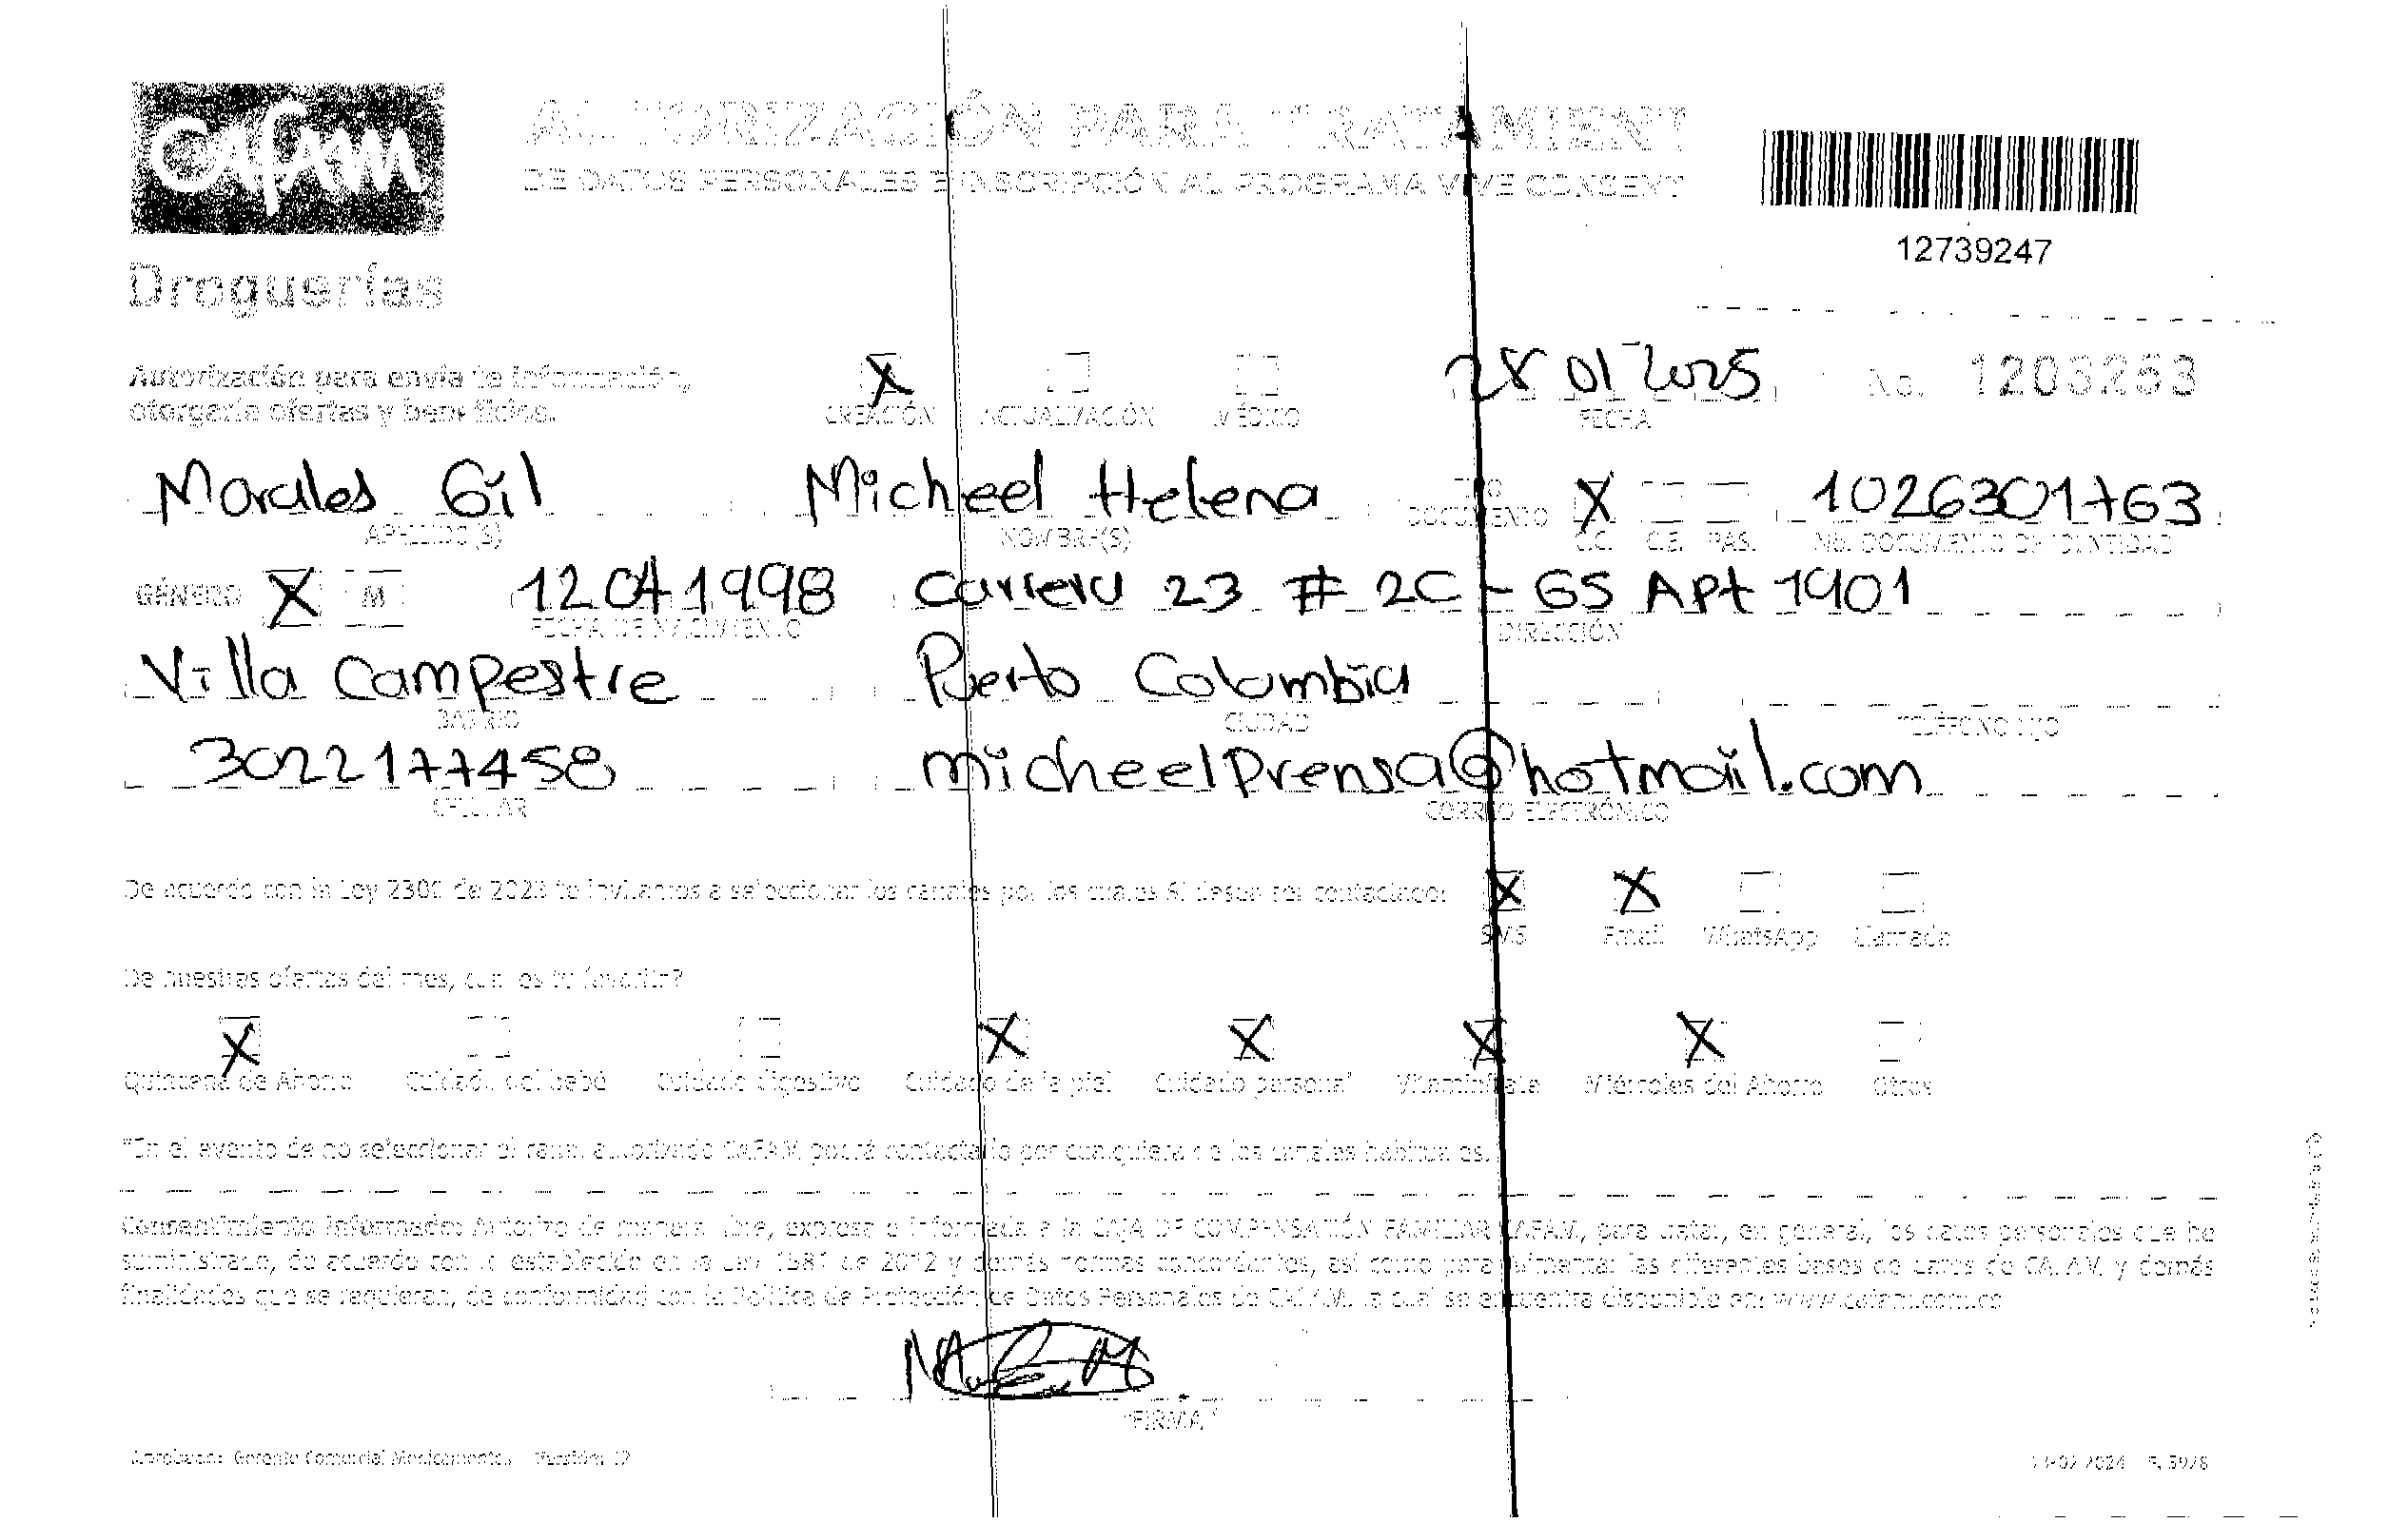 Cafam
Droguerías
AUTORIZACIÓN PARA TRATAMIENT
DE DATOS PERSONALES E INSCRIPCIÓN AL PROGRAMA VIVE CONSENT
12739247
Autorización para enviarte información,
otorgarle ofertas y beneficios.
X CREACIÓN ACTUALIZACIÓN MÉDICO
28 01 2025
FECHA
No. 1203253
Morales Gil Micheel Helena X 1026301763
APELLIDO(S) NOMBRE(S) TIPO DOCUMENTO C.C. C.E. PAS. No. DOCUMENTO DE IDENTIDAD
GÉNERO X M 12041998 Carrera 23 # 2C - 65 Apt 1901
FECHA DE NACIMIENTO DIRECCIÓN
Villa Campestre Puerto Colombia
BARRIO CIUDAD TELÉFONO FIJO
3022177458 micheelprensa@hotmail.com
CELULAR CORREO ELECTRÓNICO
De acuerdo con la Ley 2300 de 2023 te invitamos a seleccionar los canales por los cuales SÍ desea ser contactado: X X
SMS Email WhatsApp Llamada
De nuestras ofertas del mes, cuál es tu favorita?
X X X X X
Quincena de Ahorro Cuidado del bebé Cuidado digestivo Cuidado de la piel Cuidado personal Vitamínate Miércoles del Ahorro Otros
*En el evento de no seleccionar el canal autorizado CAFAM podrá contactarlo por cualquiera de los canales habituales.
Consentimiento Informado: Autorizo de manera libre, expresa e informada a la CAJA DE COMPENSACIÓN FAMILIAR CAFAM, para tratar, en general, los datos personales que he
suministrado, de acuerdo con lo establecido en la Ley 1581 de 2012 y demás normas concordantes, así como para alimentar las diferentes bases de datos de CAFAM y demás
finalidades que se requieran, de conformidad con la Política de Protección de Datos Personales de CAFAM, la cual se encuentra disponible en: www.cafam.com.co
FIRMA
Aprobador: Gerente Comercial Medicamentos Versión: 12